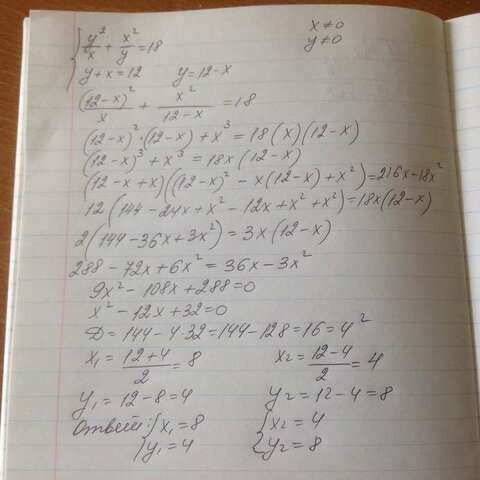 { y²/x + x²/y = 18    x ≠ 0
y + x = 12    y = 12 - x    y ≠ 0
(12-x)²/x + x²/(12-x) = 18
(12-x)²·(12-x) + x³ = 18(x)(12-x)
(12-x)³ + x³ = 18x(12-x)
(12-x+x)((12-x)² - x(12-x) + x²) = 216x - 18x²
12(144 - 24x + x² - 12x + x² + x²) = 18x(12-x)
2(144 - 36x + 3x²) = 3x(12-x)
288 - 72x + 6x² = 36x - 3x²
9x² - 108x + 288 = 0
x² - 12x + 32 = 0
D = 144 - 4·32 = 144 - 128 = 16 = 4²
x₁ = (12+4)/2 = 8    x₂ = (12-4)/2 = 4
y₁ = 12 - 8 = 4    y₂ = 12 - 4 = 8
Ответ: { x₁ = 8    { x₂ = 4
y₁ = 4    y₂ = 8